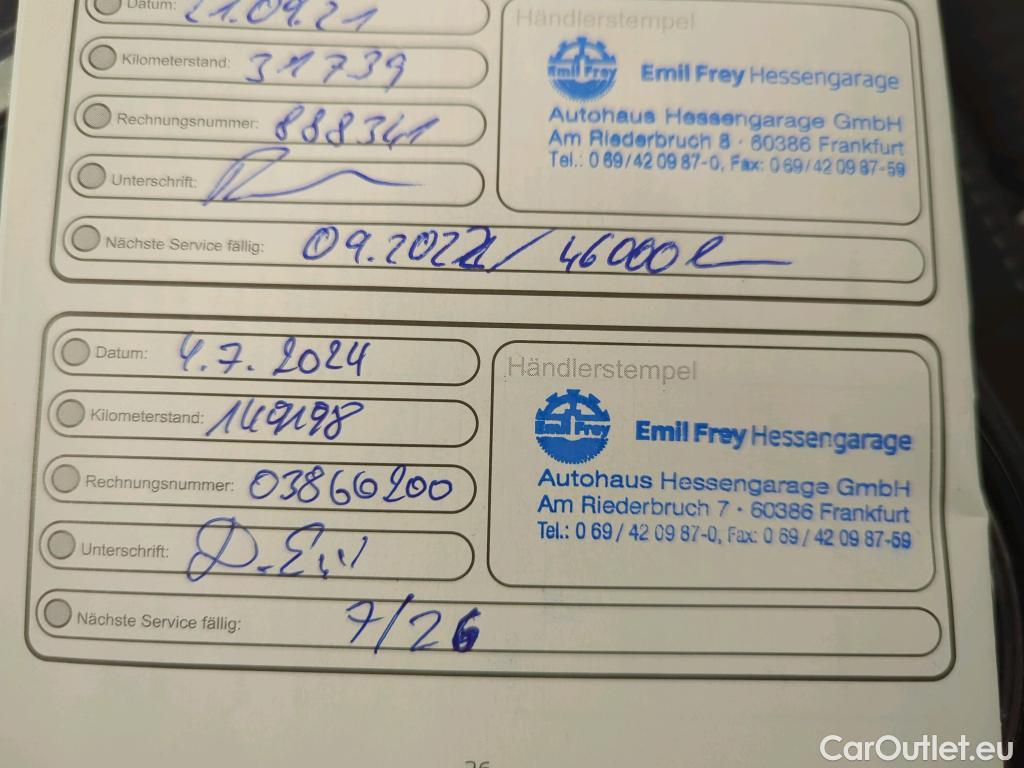 Datum: 21.09.21
Kilometerstand: 31739
Rechnungsnummer: 888341
Unterschrift:
Nächste Service fällig: 09.2022 / 46000
Händlerstempel
Emil Frey
Emil Frey Hessengarage
Autohaus Hessengarage GmbH
Am Riederbruch 8 · 60386 Frankfurt
Tel.: 0 69/42 09 87-0, Fax: 0 69/42 09 87-59
Datum: 4.7.2024
Kilometerstand: 149198
Rechnungsnummer: 03866200
Unterschrift:
Nächste Service fällig: 7/26
Händlerstempel
Emil Frey
Emil Frey Hessengarage
Autohaus Hessengarage GmbH
Am Riederbruch 7 · 60386 Frankfurt
Tel.: 0 69 / 42 09 87-0, Fax: 0 69 / 42 09 87-59
CarOutlet.eu